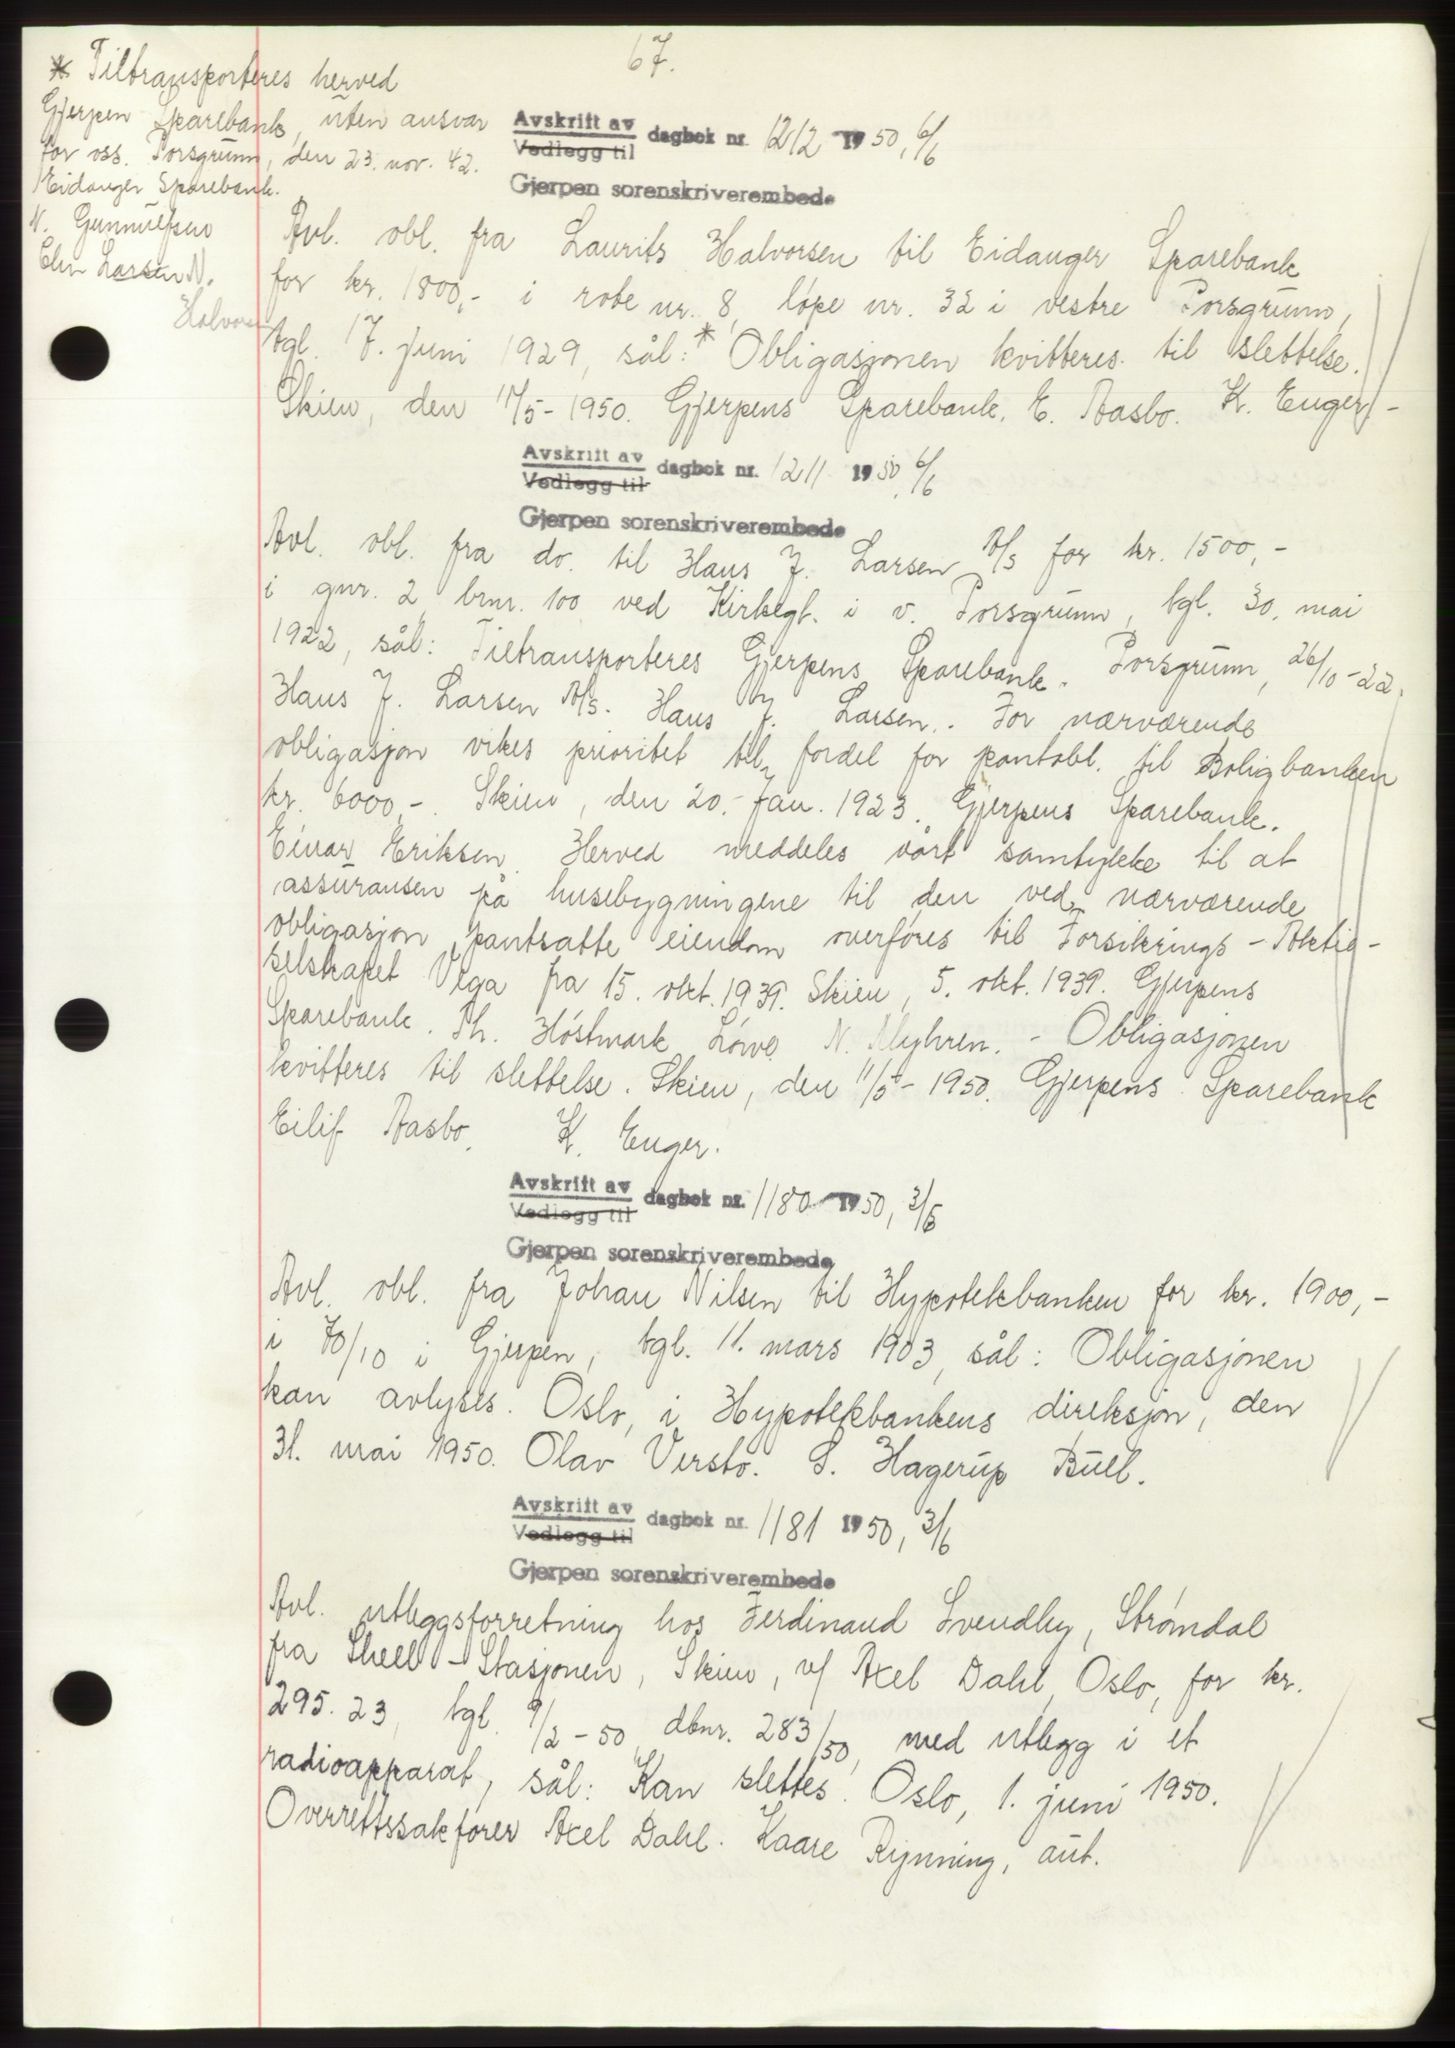 67.
* Tiltransporteres herved
Gjerpen Sparebank, uten ansvar
for oss. Porsgrunn, den 23. nov. 42.
Eidanger Sparebank.
N. Gunnulfsen
Chr. Larsen N.
Halvorsen
Avskrift av dagbok nr. 1212 1950, 6/6
Vedlegg til
Gjerpen sorenskriverembede
Avl. obl. fra Laurits Halvorsen til Eidanger Sparebank
for kr. 1800,- i rode nr. 8, løpe nr. 32 i vestre Porsgrunn,
tgl. 17. juni 1929, sål: * Obligasjonen kvitteres til slettelse.
Skien, den 11/5-1950. Gjerpens Sparebank. E. Aasbo. K. Enger. -
Avskrift av dagbok nr. 1211 1950, 6/6
Vedlegg til
Gjerpen sorenskriverembede
Avl. obl. fra do. til Hans J. Larsen A/s for kr. 1500,-
i gnr. 2 brnr. 100 ved Kirkegt. i v. Porsgrunn, tgl. 30. mai
1922, sål: Tiltransporteres Gjerpens Sparebank. Porsgrunn, 26/10-22.
Hans J. Larsen A/s. Hans J. Larsen. For nærværende
obligasjon vikes prioritet til fordel for pantobl. til Boligbanken
kr. 6000,-. Skien, den 20. Jan. 1923. Gjerpens Sparebank.
Einar Eriksen. Herved meddeles vårt samtykke til at
assuransen på husebygningene til den ved nærværende
obligasjon pantsatte eiendom overføres til Forsikrings-Aktie-
selskapet Vega fra 15. okt. 1939. Skien, 5. okt. 1939. Gjerpens
Sparebank. Th. Høstmark Løwe. N. Myhren. - Obligasjonen
kvitteres til slettelse. Skien, den 11/5-1950. Gjerpens Sparebank
Eilif Aasbo. K. Enger.
Avskrift av dagbok nr. 1180 1950, 3/6
Vedlegg til
Gjerpen sorenskriverembede
Avl. obl. fra Johan Nilsen til Hypotekbanken for kr. 1900,-
i 70/10 i Gjerpen, tgl. 11. mars 1903, sål: Obligasjonen
kan avlyses. Oslo, i Hypotekbankens direksjon, den
31. mai 1950. Olav Versto. S. Hagerup Bull.
Avskrift av dagbok nr. 1181 1950, 3/6
Vedlegg til
Gjerpen sorenskriverembede
Avl. utleggsforretning hos Ferdinand Svendby, Strømdal
fra Shell-Stasjonen, Skien, v/ Axel Dahl, Oslo, for kr.
295.23, tgl. 9/2-50, dbnr. 283/50, med utlegg i et
radioapparat, sål: Kan slettes. Oslo, 1. juni 1950.
Overrettssakfører Axel Dahl. Kaare Rynning, aut.